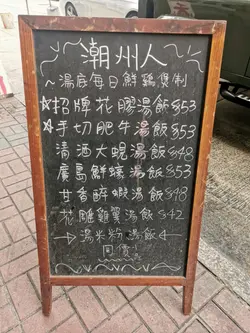 潮州人
~湯底每日鮮鷄煲制
☆招牌花膠湯飯$53
☆手切肥牛湯飯$53
清酒大蜆湯飯$48
廣島鮮蠔湯飯$53
甘香醉蝦湯飯$48
花雕鷄煲湯飯$42
湯米粉湯飯
同價!